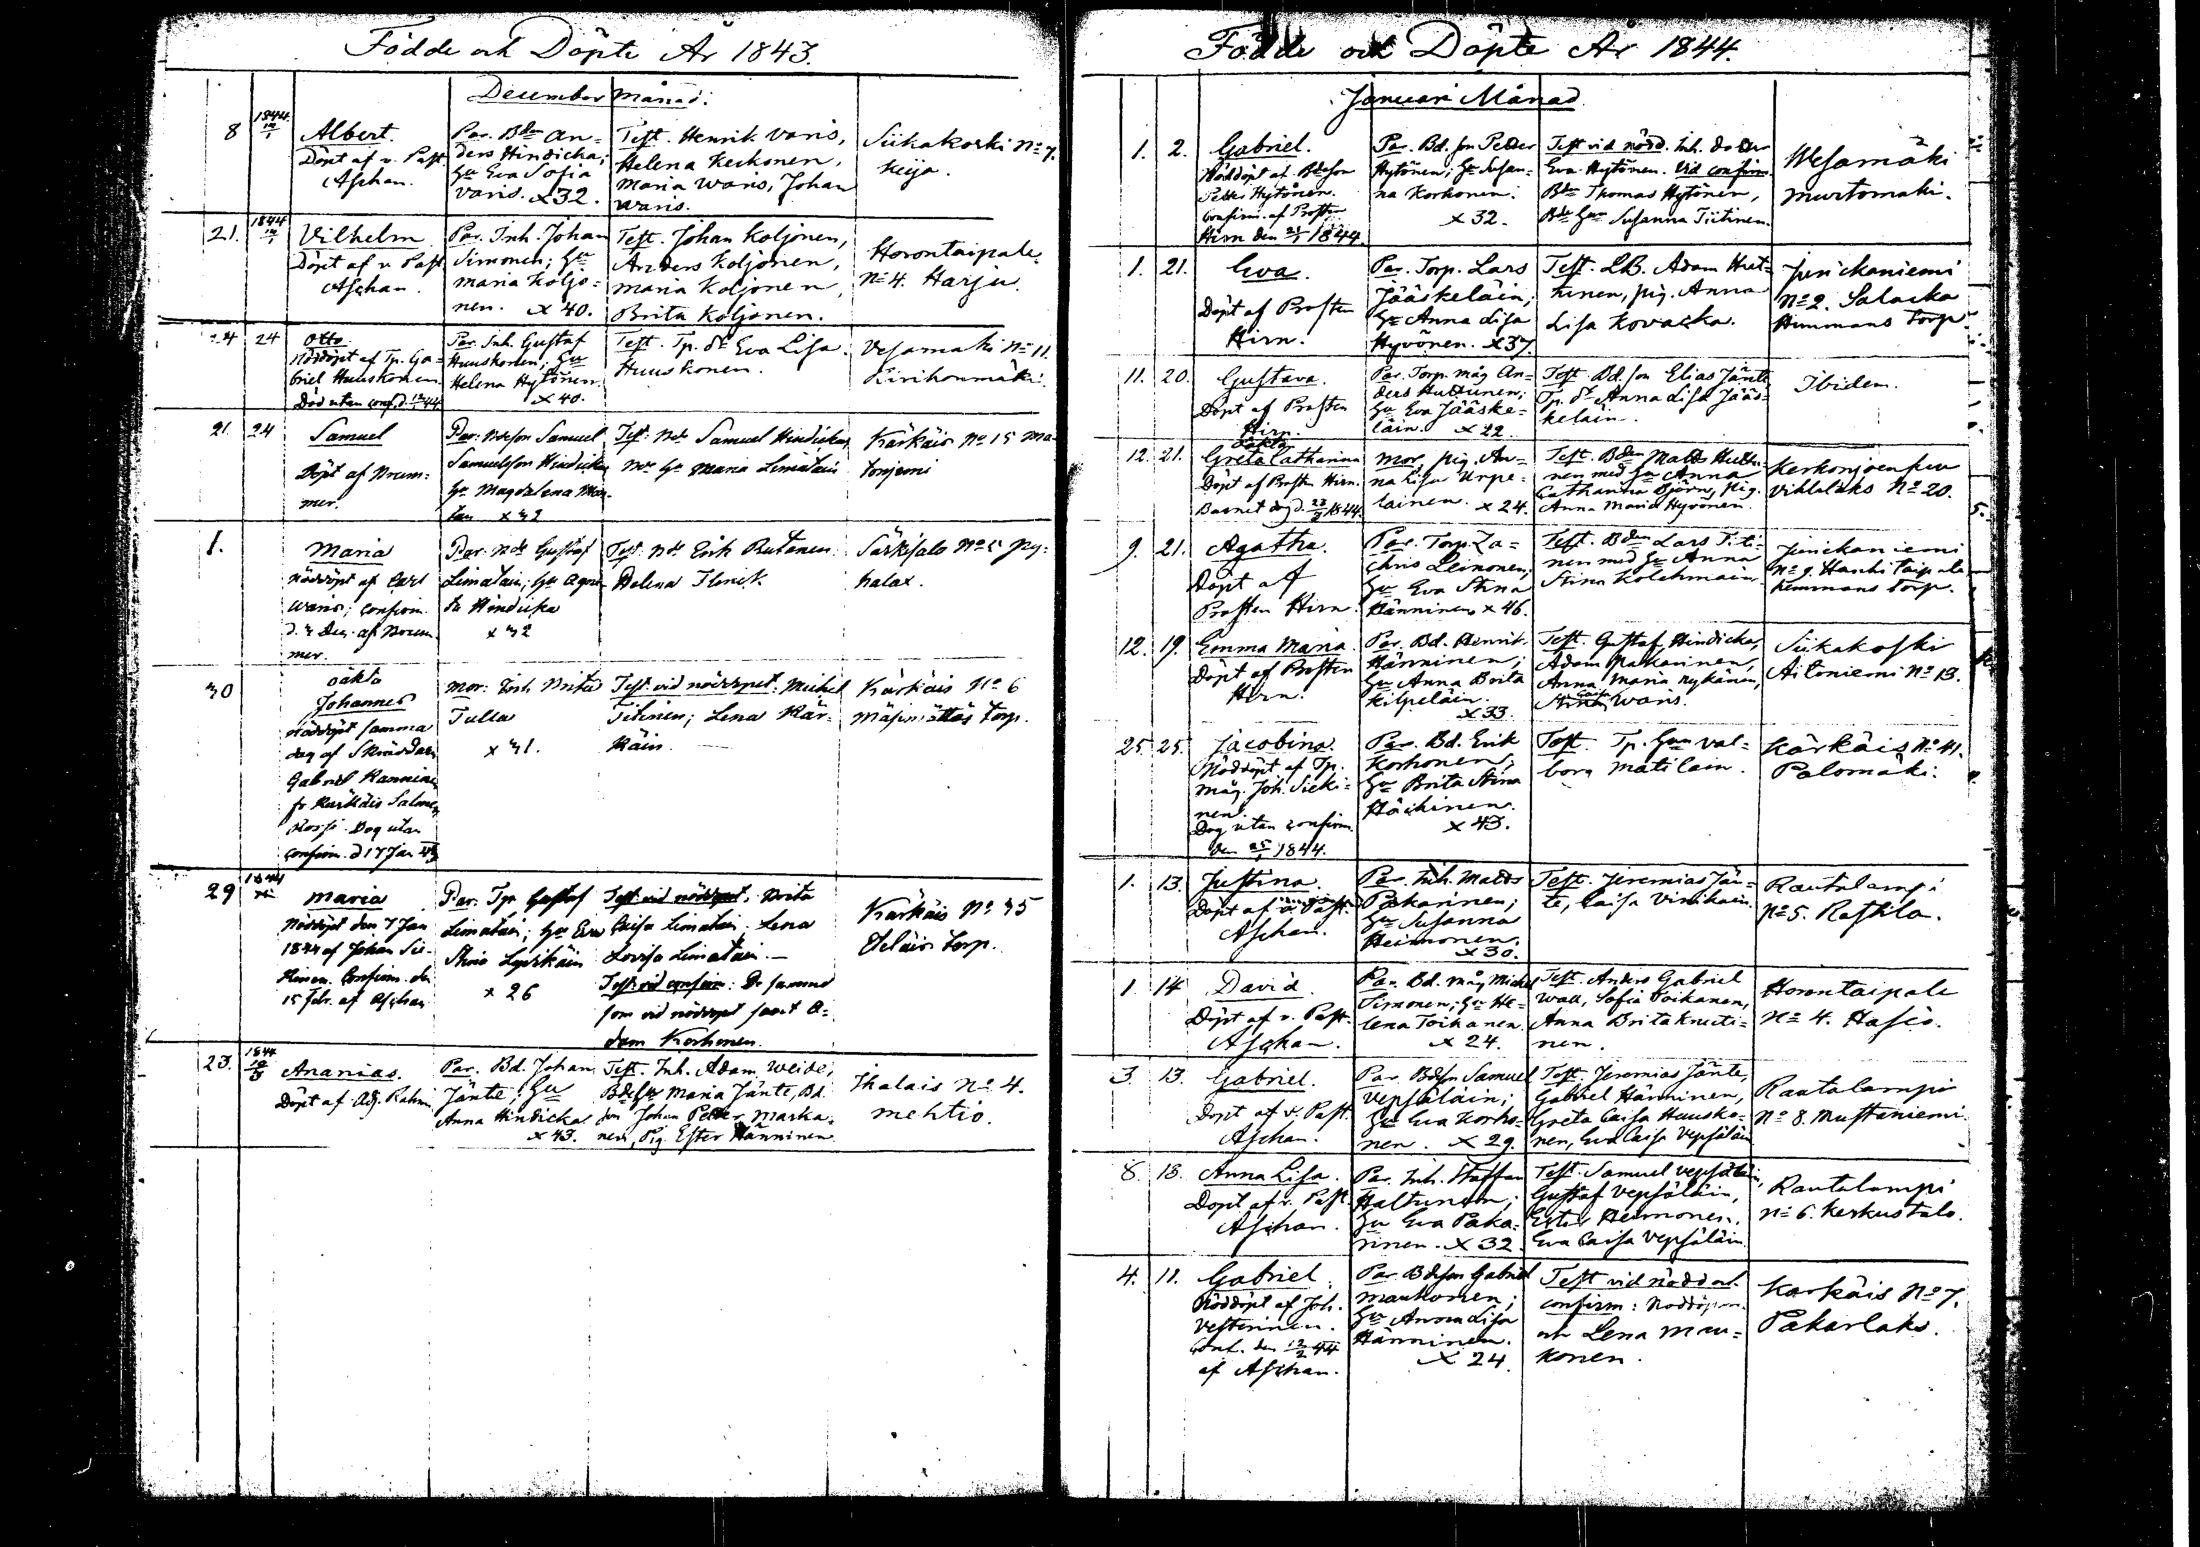 Födde och Döpte År 1843.
December månad.
8
1844 14/1
Albert.
Döpt af v. Past.
Aschan.
Par. Bdn An=
ders Hindicka,
Hu Eva Sofia
Varis. x 32.
Test. Henrik Varis,
Helena Keskonen,
Maria Waris, Johan
Waris.
Siikakoski No 7.
Keija.
21.
1844 14/1
Vilhelm
Döpt af v. Past.
Aschan.
Par. Inh. Johan
Simonen; Hu
Maria Koljo=
nen. x 40.
Test. Johan Koljonen,
Anders Koljonen,
Maria Koljonen,
Brita Koljonen.
Horontaipale
No 4. Harju.
24
24
Otto.
Nöddöpt af Tp. Ga=
briel Huuskonen
Död utan conf. d.
Par. Inh. Gustaf
Huuskonen; Hu
Helena Hytönen.
x 40.
Test. Tp. dr Eva Lisa
Huuskonen.
Vesamäki No 11.
21.
24
Samuel
Döpt af Brum=
mer.
Par: Bdeson Samuel
Samuelsson Hindicka
Hu Magdalena
x 32
Test: Bde Samuel Hindicka
Hu Maria Limatain
Kärkäis No 15
1.
Maria
Nöddöpt af Carl
Waris; confirm.
d. 3 Dec. af Brum=
mer.
Par: Bde Gustaf
Limatain; Hu Aga=
ta Hindicka
x 32
Test: Bde Erik Rutanen
Helena
Särkisalo No 5
30
oäkta
Johannes
nöddöpt samma
dag af Skräddar
Gabriel Hänninen
fr Kärkäis Salmen
Dog utan
confirm. d 17 Jan
Mor: Inh. Brita
Tulla
x 31.
Test. vid nöddopet: Michel
Titinen; Lena Kär=
käin.
Kärkäis No 6
torp.
29
1844
Maria
Nöddöpt den 7 Jan
1844 af Johan Sie=
kinen. Confirm. den
15 Febr. af Aschan
Par: Tp. Gustaf
Limatain; Hu Eva
Stina Lyytikäin
x 26
Test. vid nöddopet: Brita
Caisa Limatain, Lena
Lovisa Limatain. —
Test: vid confirm: De samma
som vid nöddopet samt A=
dam Korhonen.
Kärkäis No 35
torp.
23.
1844
Ananias.
Döpt af Adj. Rahm
Par. Bd. Johan
Jänte; Hu
Anna Hindicka
x 43.
Test. Inh. Adam Weide,
Bde Hu Maria Jänte, Bd.
son Johan Petter Marka=
nen, Pig. Ester Hänninen
Ihalais No 4.
Mehtio.
Födde och Döpte År 1844.
Januari Månad.
1.
2.
Gabriel.
Nöddöpt af Bdeson
Petter Hytönen.
Confirm. af Prosten
Hirn den 21/1 1844.
Par. Bd. son Petter
Hytönen; Hu Susan=
na Korhonen.
x 32.
Test vid nödd. Inh. dotter
Eva Hytönen. Vid confirm
Bdn Thomas Hytönen,
Bde Hun Susanna Tiitinen.
Wesamäki
Murtomäki.
1.
21.
Eva.
Döpt af Prosten
Hirn.
Par. Torp. Lars
Jääskeläin,
Hu Anna Lisa
Hyvönen. x 37.
Test. LB. Adam Hut=
tunen, pig. Anna
Lisa Kovacka.
Junickaniemi
No 2. Salacka
Hemmans torp.
11.
20.
Gustava.
Döpt af Prosten
Hirn.
Par. Torp. måg An=
ders Huttunen;
Hu Eva Jääske=
läin. x 22.
Test. Bd. son Elias Jänte
Tp. dr Anna Lisa Jääs=
keläin.
Ibidem.
12.
21.
oäkta
Greta Catharina
Döpt af Prosten Hirn.
Barnet dog d. 1844.
Mor, pig. An=
na Lisa Urpe=
lainen. x 24.
Test. Bden Matts Hutu=
nen med Hu Anna
Catharina Björn, pig.
Anna Maria Hyvönen.
Kerkonjoensuu
Vihlalaks No 20.
9.
21.
Agatha.
Döpt af
Prosten Hirn.
Par. Torp. Za=
chris Leinonen;
Hu Eva Stina
Hänninen x 46.
Test. Bden Lars Titi=
nen med Hu Anna
Stina Kolehmain.
Junickaniemi
No 9. Hankitaipale
hemmans torp.
12.
19.
Emma Maria.
Döpt af Prosten
Hirn.
Par. Bd. Henrik
Hänninen;
Hu Anna Brita
Kilpeläin.
x 33.
Test. Gustaf Hindicka,
Adam Pakarinen,
Anna Maria Nykänen,
Caisa Waris.
Siikakoski
Aitoniemi No 13.
25.
25.
Jacobina.
Nöddöpt af Tp.
måg. Joh. Sieki=
nen.
Dog utan confirm.
den 25/1 1844.
Par. Bd. Erik
Korhonen;
Hu Brita Stina
Häckinen.
x 43.
Test. Tp. Hun Val=
borg Matilain.
Kärkäis No 41.
Palomäki.
1.
13.
Justina.
Döpt af v. Past.
Aschan.
Par. Inh. Matts
Pakarinen;
Hu Susanna
Heimonen.
x 30.
Test. Jeremias Jän=
te, Caisa Vinikain.
Rautalampi
No 5. Rastila.
1.
14
David.
Döpt af v. Past.
Aschan.
Par. Bd. måg Michel
Simonen; Hu He=
lena Toikanen
x 24.
Test. Anders Gabriel
Wall, Sofia Toikanen,
Anna Brita Knuti=
nen.
Horontaipale
No 4.
3.
13.
Gabriel.
Döpt af v. Past.
Aschan.
Par. Bdson Samuel
Vepsäläin;
Hu Eva Korho=
nen. x 29.
Test. Jeremias Jänte,
Gabriel Hänninen,
Greta Caisa Huusko=
nen, Eva Caisa Vepsäläin
Rautalampi
No 8. Mustaniemi.
8.
13.
Anna Lisa.
Döpt af v. Past.
Aschan.
Par. Inh. Staffan
Haltunen;
Hu Eva Paka=
rinen. x 32.
Test. Samuel Vepsäläin,
Gustaf Vepsäläin,
Ester Heimonen,
Eva Caisa Vepsäläin.
Rautalampi
No 6. Keskustalo.
4.
11.
Gabriel.
Nöddöpt af Joh.
Vesterinen.
Conf. den 12/2 44
af Aschan.
Par. Bdeson Gabriel
Maukonen;
Hu Anna Lisa
Hänninen.
x 24.
Test vid nödd och
confirm: Nöddöparen
och Lena Mau=
konen.
Karkäis No 7.
Pakarlaks.